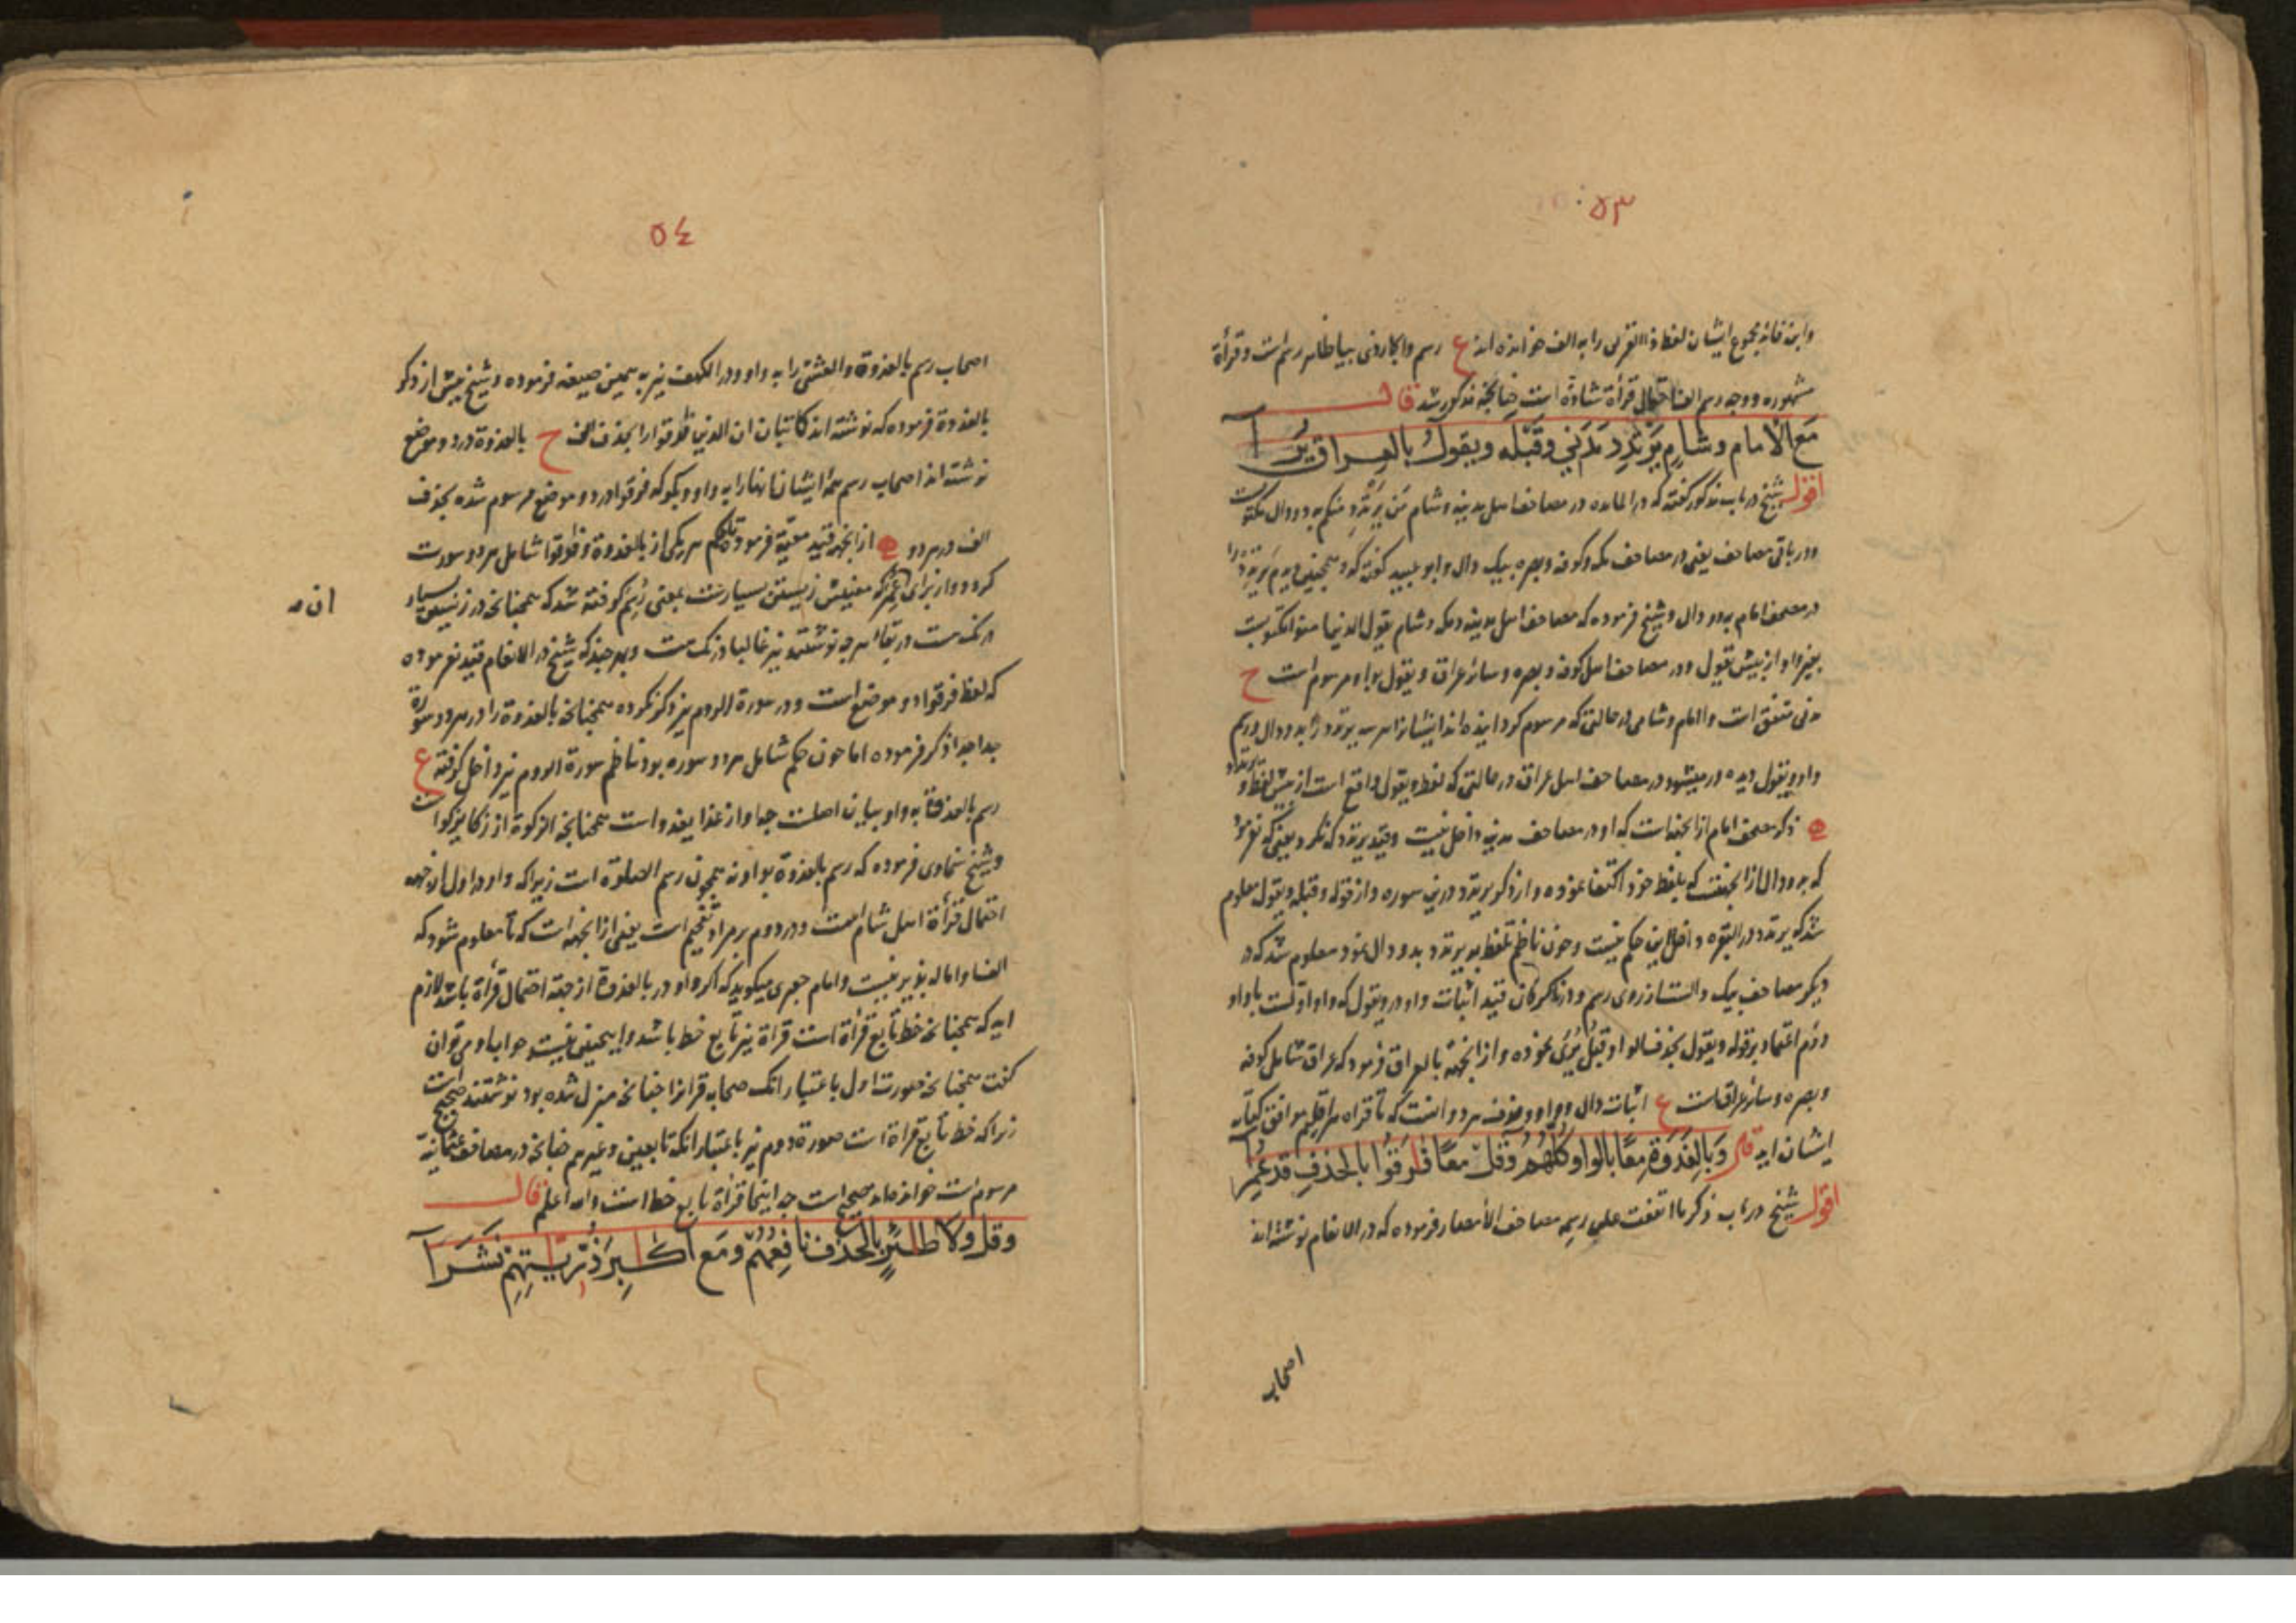 ٥٣
ایشان لفظ را به الف خوانده اند ع رسم است و قرأة
مشهوره و وجه رسم الف احتمال قرأة شاذه است چنانچه مذکور شد قال
مع الامام وشام يرتدد مدني وقبله ويقول بالعراق يرا
اقول شیخ در باب مذکور گفته که در المائده در مصاحف اهل مدینه و شام من یرتدد منکم به دو دال مکتوبست
و در باقی مصاحف یعنی در مصاحف مکه و کوفه و بصره بیک دال و ابو عبید گفته که همچنین دیدم یرتدد را
در مصحف امام به دو دال و شیخ فرموده که مصاحف اهل مدینه و مکه و شام یقول الذین امنوا مکتوبست
بغیر واو از پیش یقول و در مصاحف اهل کوفه و بصره و سائر عراق و یقول بواو مرسوم است ح
مدنی متفق است با امام و شامی در حالتی که مرسوم گردانیده اند ایشان یرتدد را به دو دال
واو ویقول دیده در میشود در مصاحف اهل عراق در حالتی که لفظ ویقول واقع است از پیش لفظ
ذکر مصحف امام از انجهة است که او در مصاحف مدینه داخل نیست و قید یرتدد
که به دو دال از انجهتست که بلفظ خود اکتفا نموده و از ذکر یرتدد درین سوره و از قوله وقبله ویقول معلوم
شد که یرتدد در البقره داخل این حکم نیست و چون ناظم تلفظ به یرتدد بدو دال نمود معلوم شد که در
دیگر مصاحف بیک دالست از روی رسم و قید اثبات واو در ویقول که واو اولست با واو
دوم اعتماد بر قوله ویقول بحذف الواو قبل یری نموده و از انجهة بالعراق فرمود که عراق شامل کوفه
و بصره و سائر عراقست ع اثبات دال و واو و حذف هر دو انست که تا قراه هر اقلیم موافق کتابه
ایشان اید قال وبالغدوة معا بالواو كلهم وقل معا فارقوا بالحذف قد عمرا
اقول شیخ در باب ذکر ما اتفقت علی رسمه مصاحف الأمصار فرموده که در الانعام نوشته اند
اصحاب
٥٤
اصحاب رسم بالغدوة والعشی را به واو و در الکهف نیز به همین صیغه فرموده و شیخ پیش از ذکر
بالغدوة فرموده که نوشته اند کاتبان ان الذین فارقوا را بحذف الف ح بالغدوة در دو موضع
نوشته اند اصحاب رسم همه ایشان انها را به واو و بگو که فرقوا در دو موضع مرسوم شده بحذف
الف در هر دو از انجهة قید معیّة فرمود تا حکم هر یکی از بالغدوة و فارقوا شامل هر دو سورت
گردد و از برای عمر که معنیش زیستن بسیارست
ان
که شیخ در الانعام قید نفرموده
که لفظ فرقوا دو موضع است و در سورة الروم نیز ذکر نکرده همچنانچه بالغدوة را در هر دو سورة
جدا جدا ذکر فرموده اما چون حکم شامل هر دو سوره بود ناظم سورة الروم نیز داخل گرفته ع
رسم بالغدوة به واو بیان اصلست چه او از غدا یغدو است همچنانچه الزکوة از زکا یزکو است
و شیخ سخاوی فرموده که رسم بالغدوة بواو نه همچون رسم الصلوة است زیرا که واو در اول از جهة
احتمال قرأة اهل شام است و در دوم بر مراد تفخیم است یعنی از انجهة است که تا معلوم شود که
الف او اماله پذیر نیست و امام جعبری میگوید که اگر واو در بالغدوة از جهة احتمال قرأة باشد لازم
اید که همچنانچه خط تابع قرأة است قراة نیز تابع خط باشد و اینچنین نیست جواب او می توان
گفت همچنانچه صورت اول باعتبار انک صحابه قران را چنانچه منزل شده بود نوشتند صحیح است
زیرا که خط تابع قراة است صورة دوم نیز باعتبار انکه تابعین و غیرهم چنانچه در مصاحف عثمانیه
مرسوم است خوانده اند صحیح است چه اینجا قرأة تابع خط است والله اعلم قال
وقل ولا طائر بالحذف نافعهم ومع اكابر ذريتهم نشرا